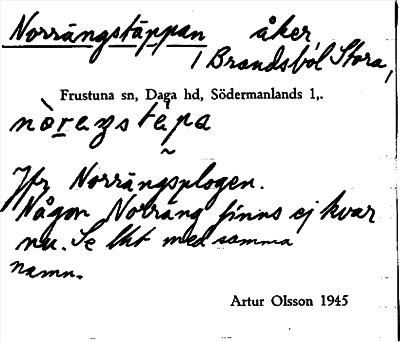 Norrängstäppan åker,
i Brandsbol Stora,
Frustuna sn, Daga hd, Södermanlands l,.
Jfr Norrängsplogen.
Någon Norräng finns ej kvar
nu. Se lht med samma
namn.
Artur Olsson 1945